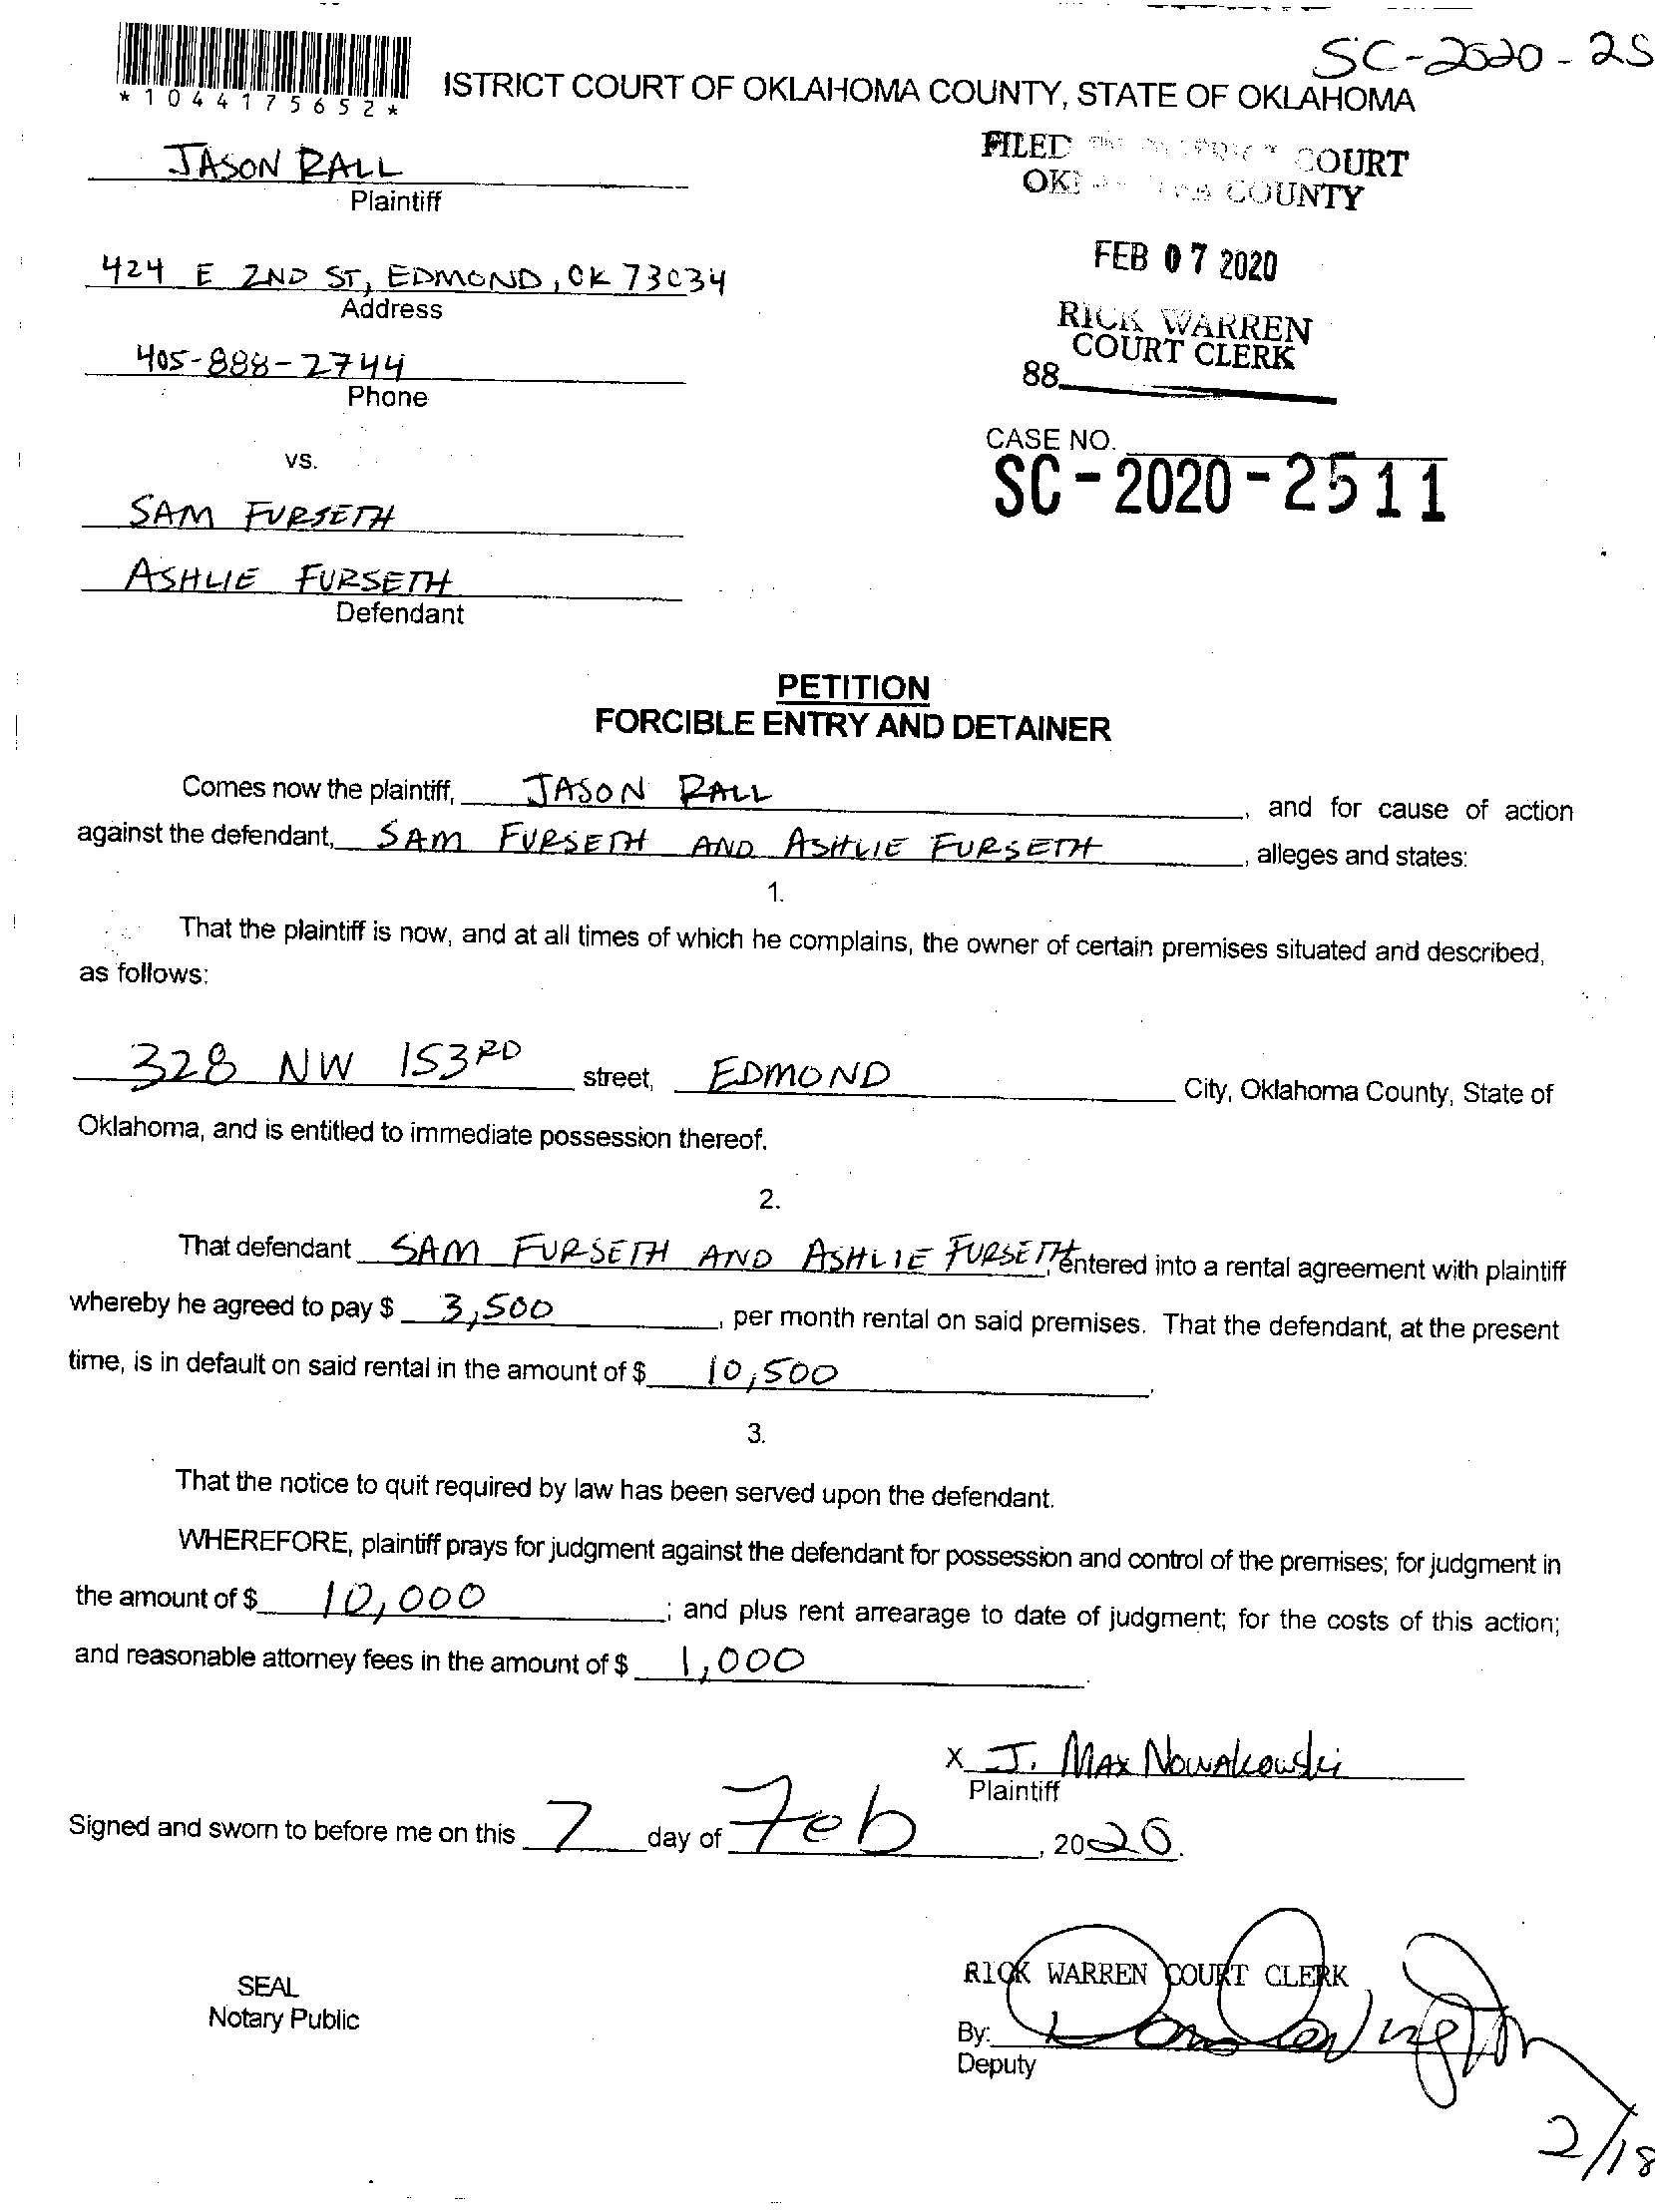 SC-2020-25
*1044175652*
ISTRICT COURT OF OKLAHOMA COUNTY, STATE OF OKLAHOMA
JASON RALL
Plaintiff
FILED COURT
COUNTY
424 E 2ND ST, EDMOND, OK 73034
Address
FEB 07 2020
RICK WARREN
COURT CLERK
88
405-888-2744
Phone
CASE NO.
SC-2020-2511
vs.
SAM FURSETH
ASHLIE FURSETH
Defendant
PETITION
FORCIBLE ENTRY AND DETAINER
Comes now the plaintiff, JASON RALL, and for cause of action
against the defendant, SAM FURSETH AND ASHLIE FURSETH, alleges and states:
1.
That the plaintiff is now, and at all times of which he complains, the owner of certain premises situated and described,
as follows:
328 NW 153RD street, EDMOND City, Oklahoma County, State of
Oklahoma, and is entitled to immediate possession thereof.
2.
That defendant SAM FURSETH AND ASHLIE FURSETH, entered into a rental agreement with plaintiff
whereby he agreed to pay $ 3,500, per month rental on said premises. That the defendant, at the present
time, is in default on said rental in the amount of $ 10,500.
3.
That the notice to quit required by law has been served upon the defendant.
WHEREFORE, plaintiff prays for judgment against the defendant for possession and control of the premises; for judgment in
the amount of $ 10,000; and plus rent arrearage to date of judgment; for the costs of this action;
and reasonable attorney fees in the amount of $ 1,000.
X J. Max Nowakowski
Plaintiff
Signed and sworn to before me on this 7 day of Feb, 2020.
SEAL
Notary Public
RICK WARREN COURT CLERK
By:
Deputy
2/18